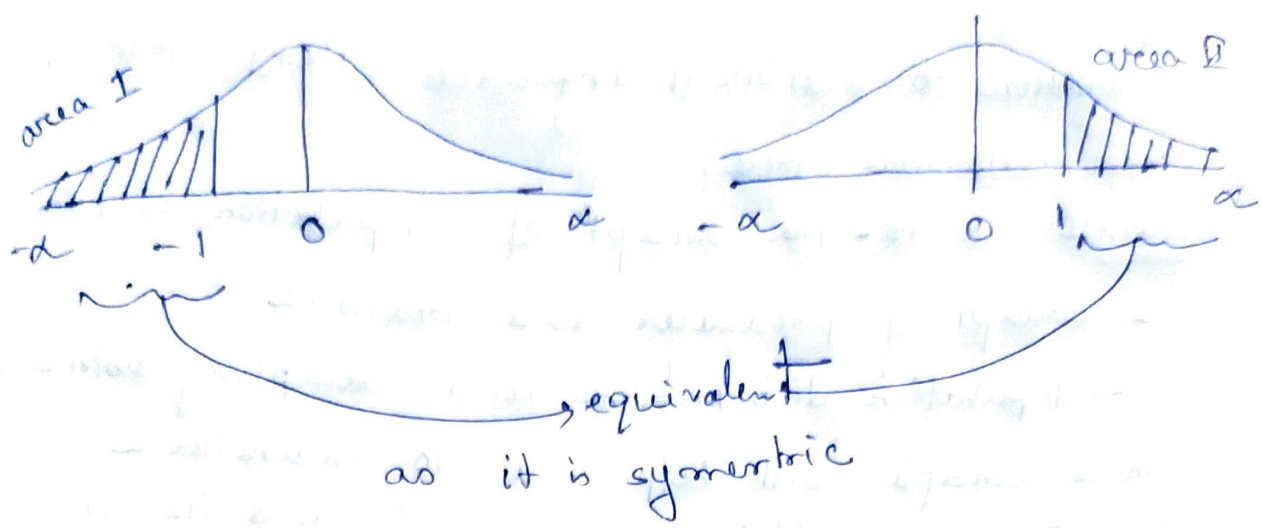 area I
area II
-α -1 0 α
-α 0 1 α
equivalent
as it is symmetric